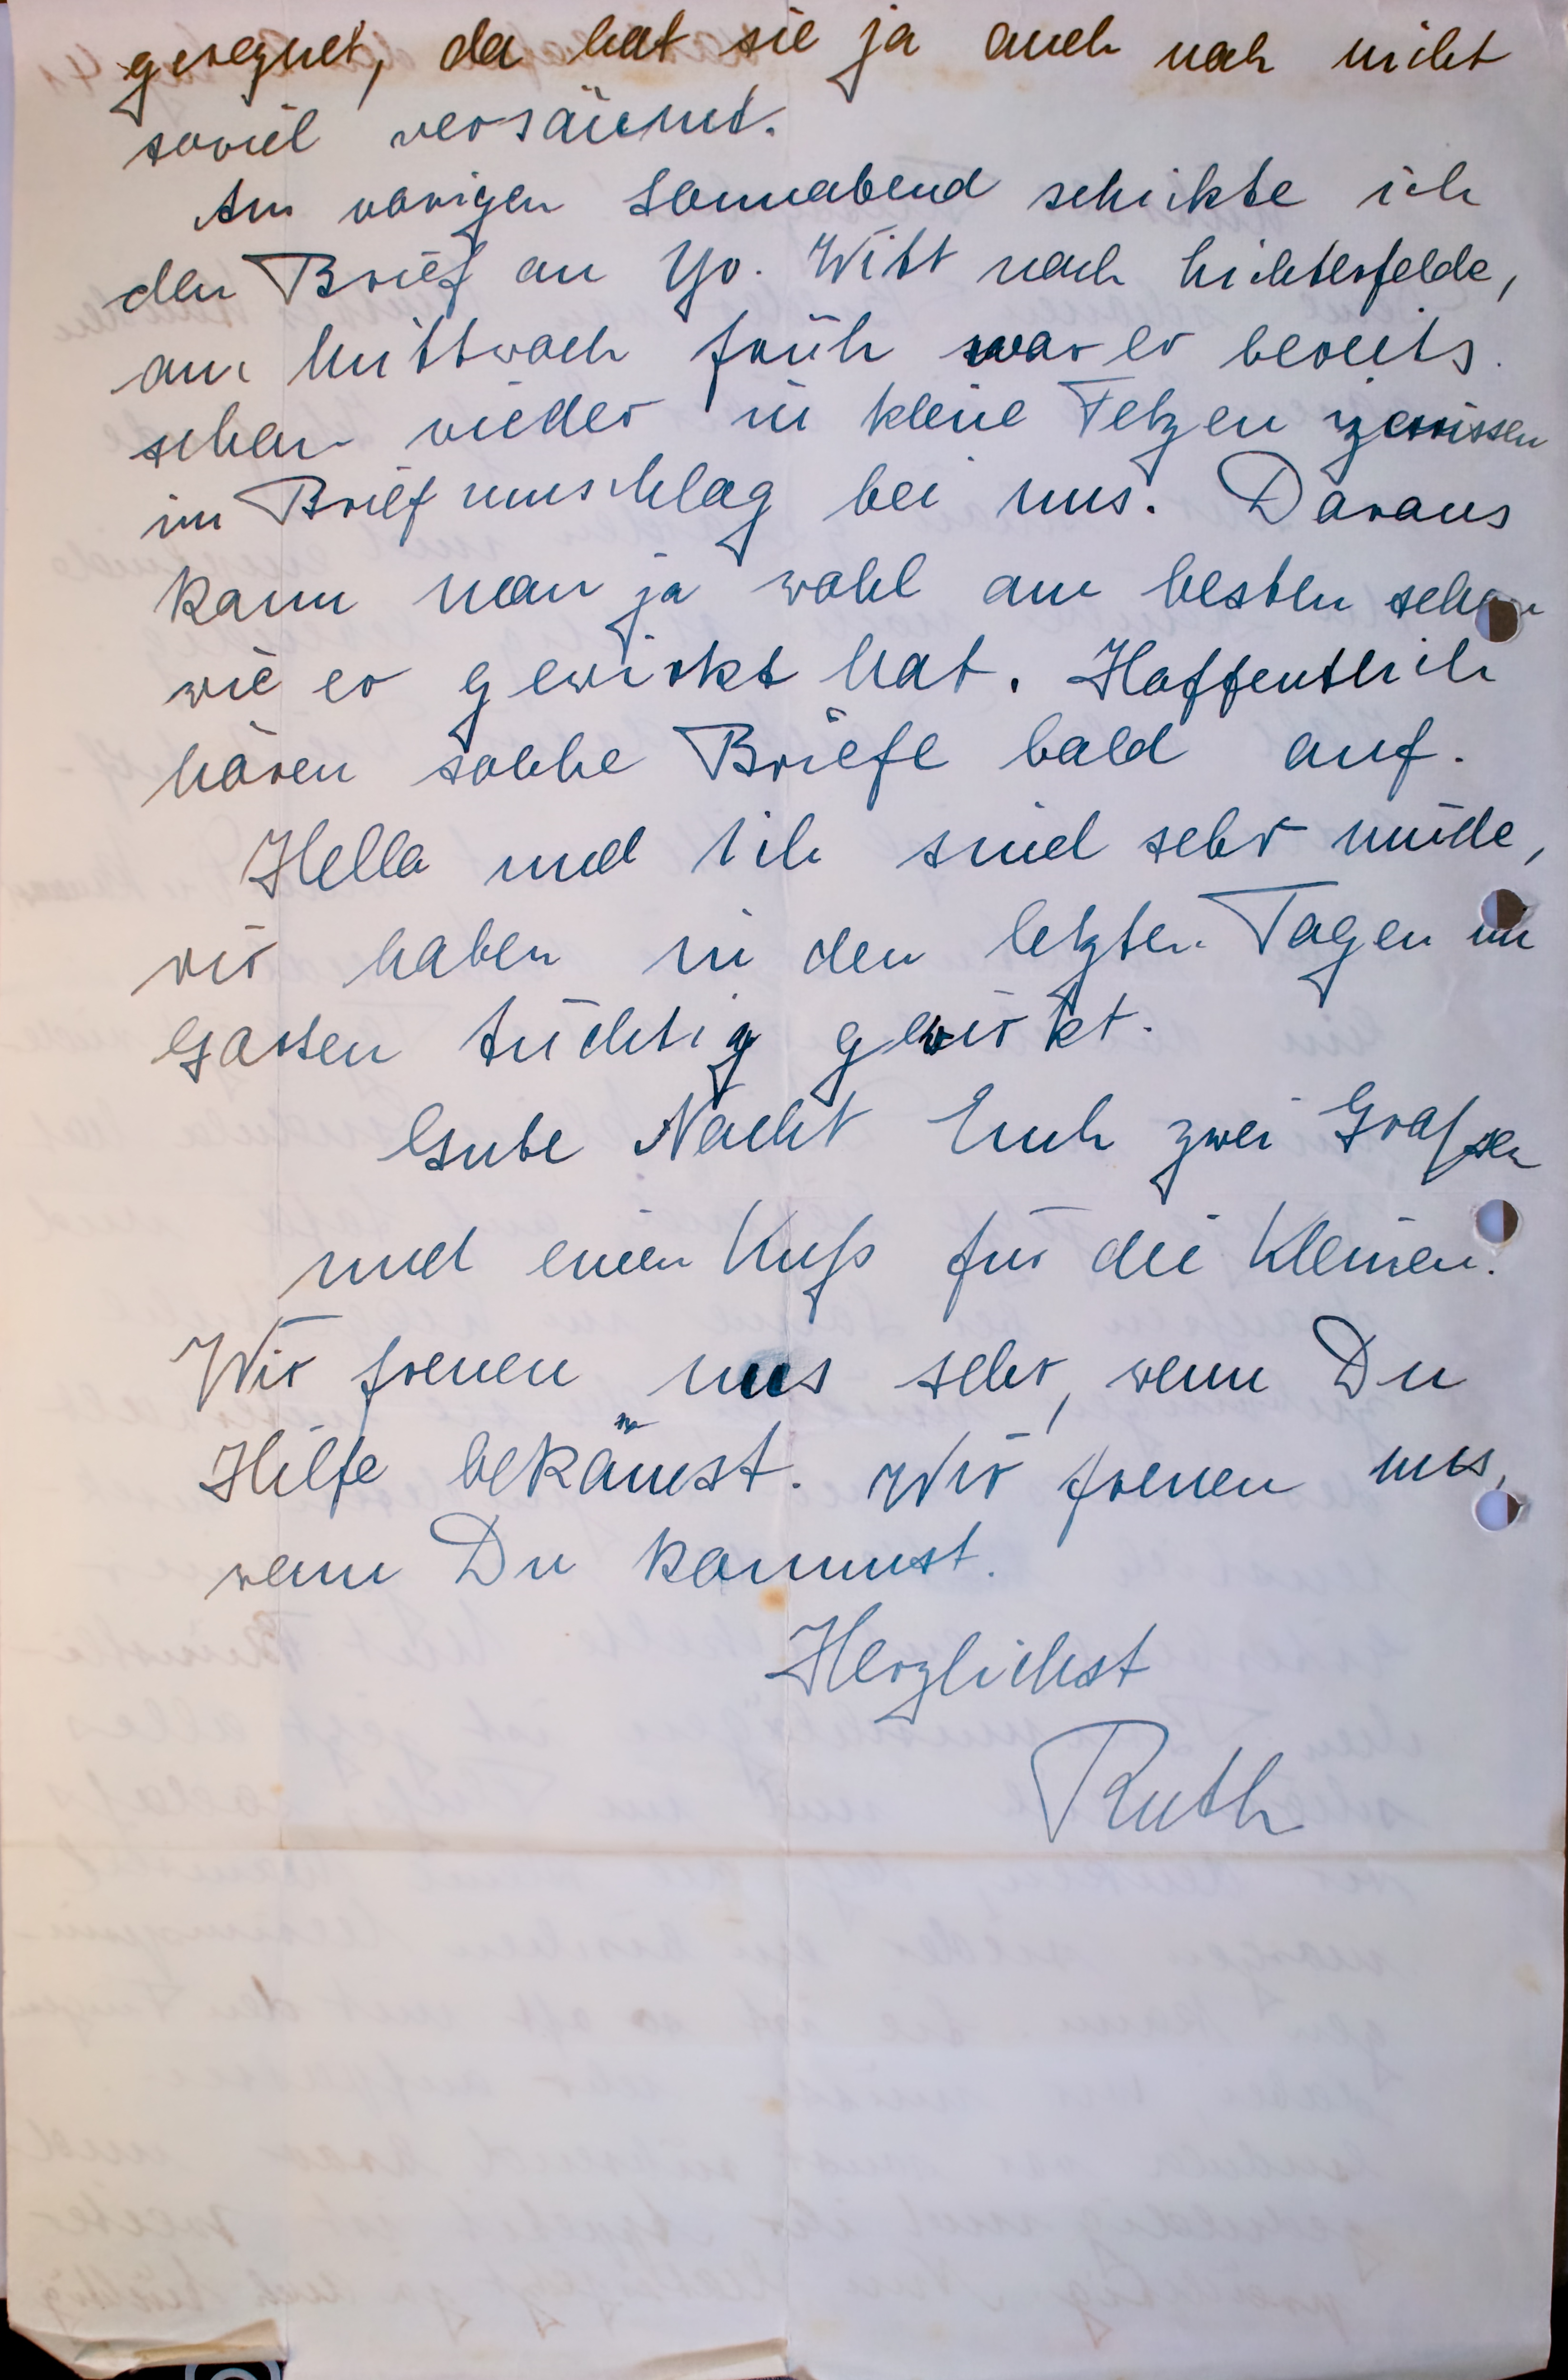 geregnet, da hat sie ja auch noch nicht
soviel versäumt.
Am vorigen Sonnabend schickte ich
den Brief an Yo. Witt nach Lichterfelde,
am Mittwoch früh war er bereits
schon wieder in kleine Fetzen zerrissen
im Briefumschlag bei uns. Daraus
kann man ja wohl am besten sehen
wie er gewirkt hat. Hoffentlich
hören solche Briefe bald auf.
Hella und ich sind sehr müde,
wir haben in den letzten Tagen im
Garten tüchtig gewirkt.
Gute Nacht Euch zwei Großen
und einen Kuß für die Kleinen.
Wir freuen uns sehr, wenn Du
Hilfe bekämst. Wir freuen uns,
wenn Du kommst.
Herzlichst
Ruth